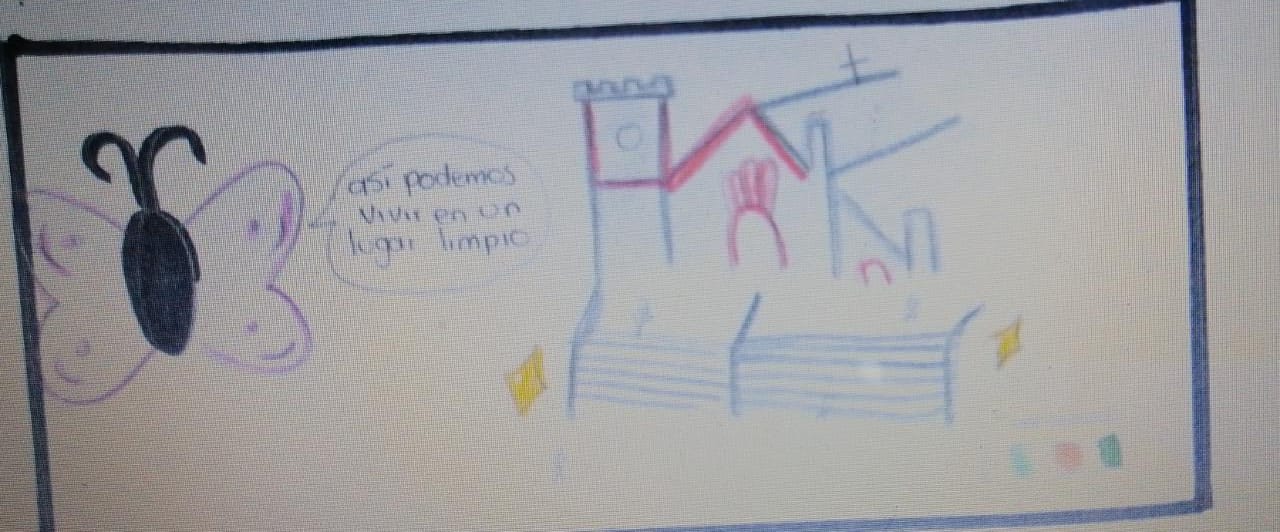 así podemos
vivir en un
lugar limpio